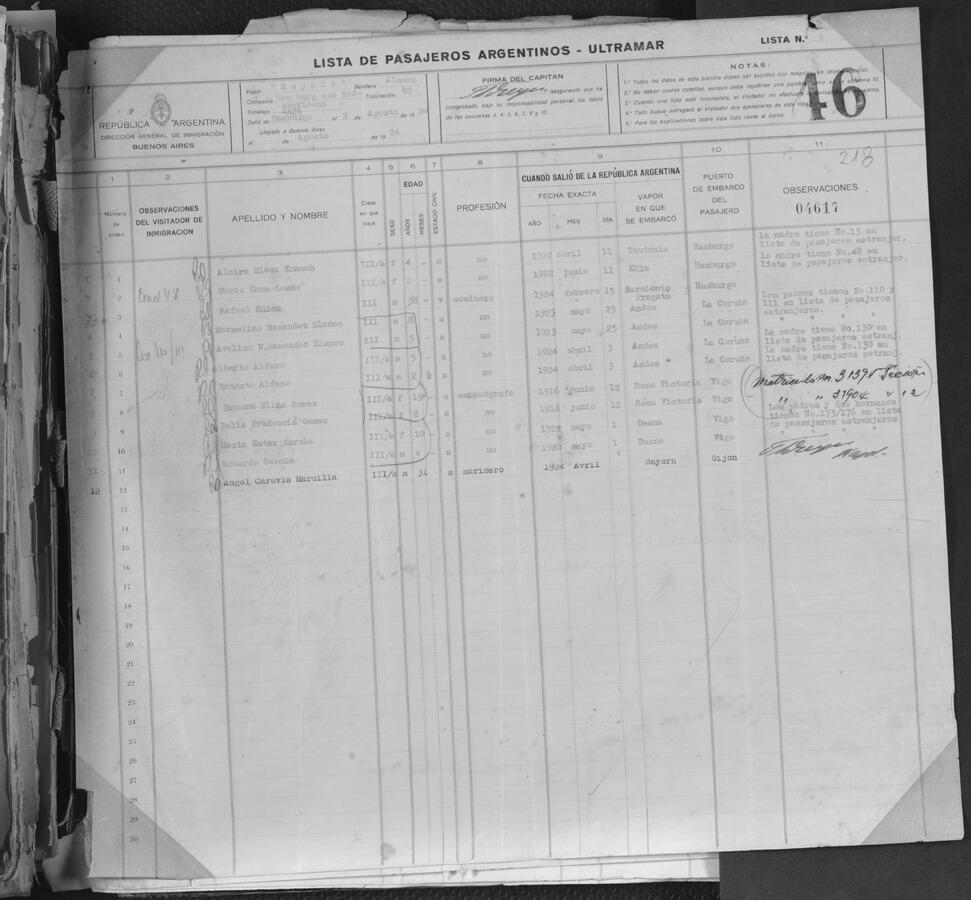 LISTA DE PASAJEROS ARGENTINOS - ULTRAMAR
LISTA N.º
46
REPÚBLICA ARGENTINA
DIRECCIÓN GENERAL DE INMIGRACIÓN
BUENOS AIRES
Vapor "España" Bandera Aleman
Compañia Tripulación 67
Tonelaje
Salió de Hamburgo el 2 de Agosto de 19 24
Llegado a Buenos Aires
el de Agosto de 19 24
FIRMA DEL CAPITAN
asegurando que ha
comprobado, bajo su responsabilidad personal, los datos
de las columnas 3, 4, 5, 6, 7, 8 y 10.
NOTAS:
1.º Todos los datos de esta planilla deben ser escritos con máquina en idioma
2.º No deben usarse comillas, aunque deba repetirse una palabra
3.º Cuando una lista esté incompleta, el Visitador no efectuará
4.º Todo buque entregará al Visitador dos ejemplares de esta lista
5.º Para las explicaciones sobre esta lista véase al dorso.
1 2 3 4 5 6 7 8 9 10 11
218
Número de orden
OBSERVACIONES DEL VISITADOR DE INMIGRACIÓN
APELLIDO Y NOMBRE
Clase en que viaja
SEXO
EDAD
AÑOS
MESES
ESTADO CIVIL
PROFESIÓN
CUANDO SALIÓ DE LA REPÚBLICA ARGENTINA
FECHA EXACTA
AÑO MES DÍA
VAPOR EN QUE SE EMBARCÓ
PUERTO DE EMBARCO DEL PASAJERO
OBSERVACIONES
04617
1 Alcira Elena III/a f 4 - s no 1922 abril 11 Teutonia Hamburgo la madre tiene No.13 en lista de pasajeros estranjer.
2 Maria Emma III/a f 2 - s no 1922 junio 11 Köln Hamburgo la madre tiene No.48 en lista de pasajeros estranjer.
3 Rafael Chica III m 38 - v cocinero 1924 febrero 15 Sarmiento Fragata Hamburgo
4 Marcelino Menendez Blanco III m 8 - s no 1923 mayo 25 Andes La Coruña Los padres tienen No.110 y 111 en lista de pasajeros estranjeros
5 Avelino N.Menendez Blanco III m 5 - s no 1923 mayo 25 Andes La Coruña " " "
6 Alberto Alfano III/a m 5 - s no 1924 abril 3 Andes La Coruña La madre tiene No.130- en lista de pasajeros estranj.
7 Ernesto Alfano III/a m 2 s no 1924 abril 3 Andes La Coruña La madre tiene No.130 en lista de pasajeros estranj.
8 Elina Gomez III/a f 19 - s 1916 junio 12 Rena Victoria Vigo Matricula no. 31390 Seccion
9 Delia Prudencia Gomez III/a f 8 - s no 1916 junio 12 Rena Victoria Vigo " " 31904 " 2
10 Maria Ester Garcia III/a f 10 - s no 1922 mayo 1 Deana Vigo Los padres y dos hermanos tienen No.173/176 en lista de pasajeros estranjeros
11 Eduardo Garcia III/a m 4 - s no 1922 mayo 1 Deana Vigo
12 Angel Caravia Marcilla III/a m 31 - s marinero 1924 Avril Bayern Gijon
12
13
14
15
16
17
18
19
20
21
22
23
24
25
26
27
28
29
30